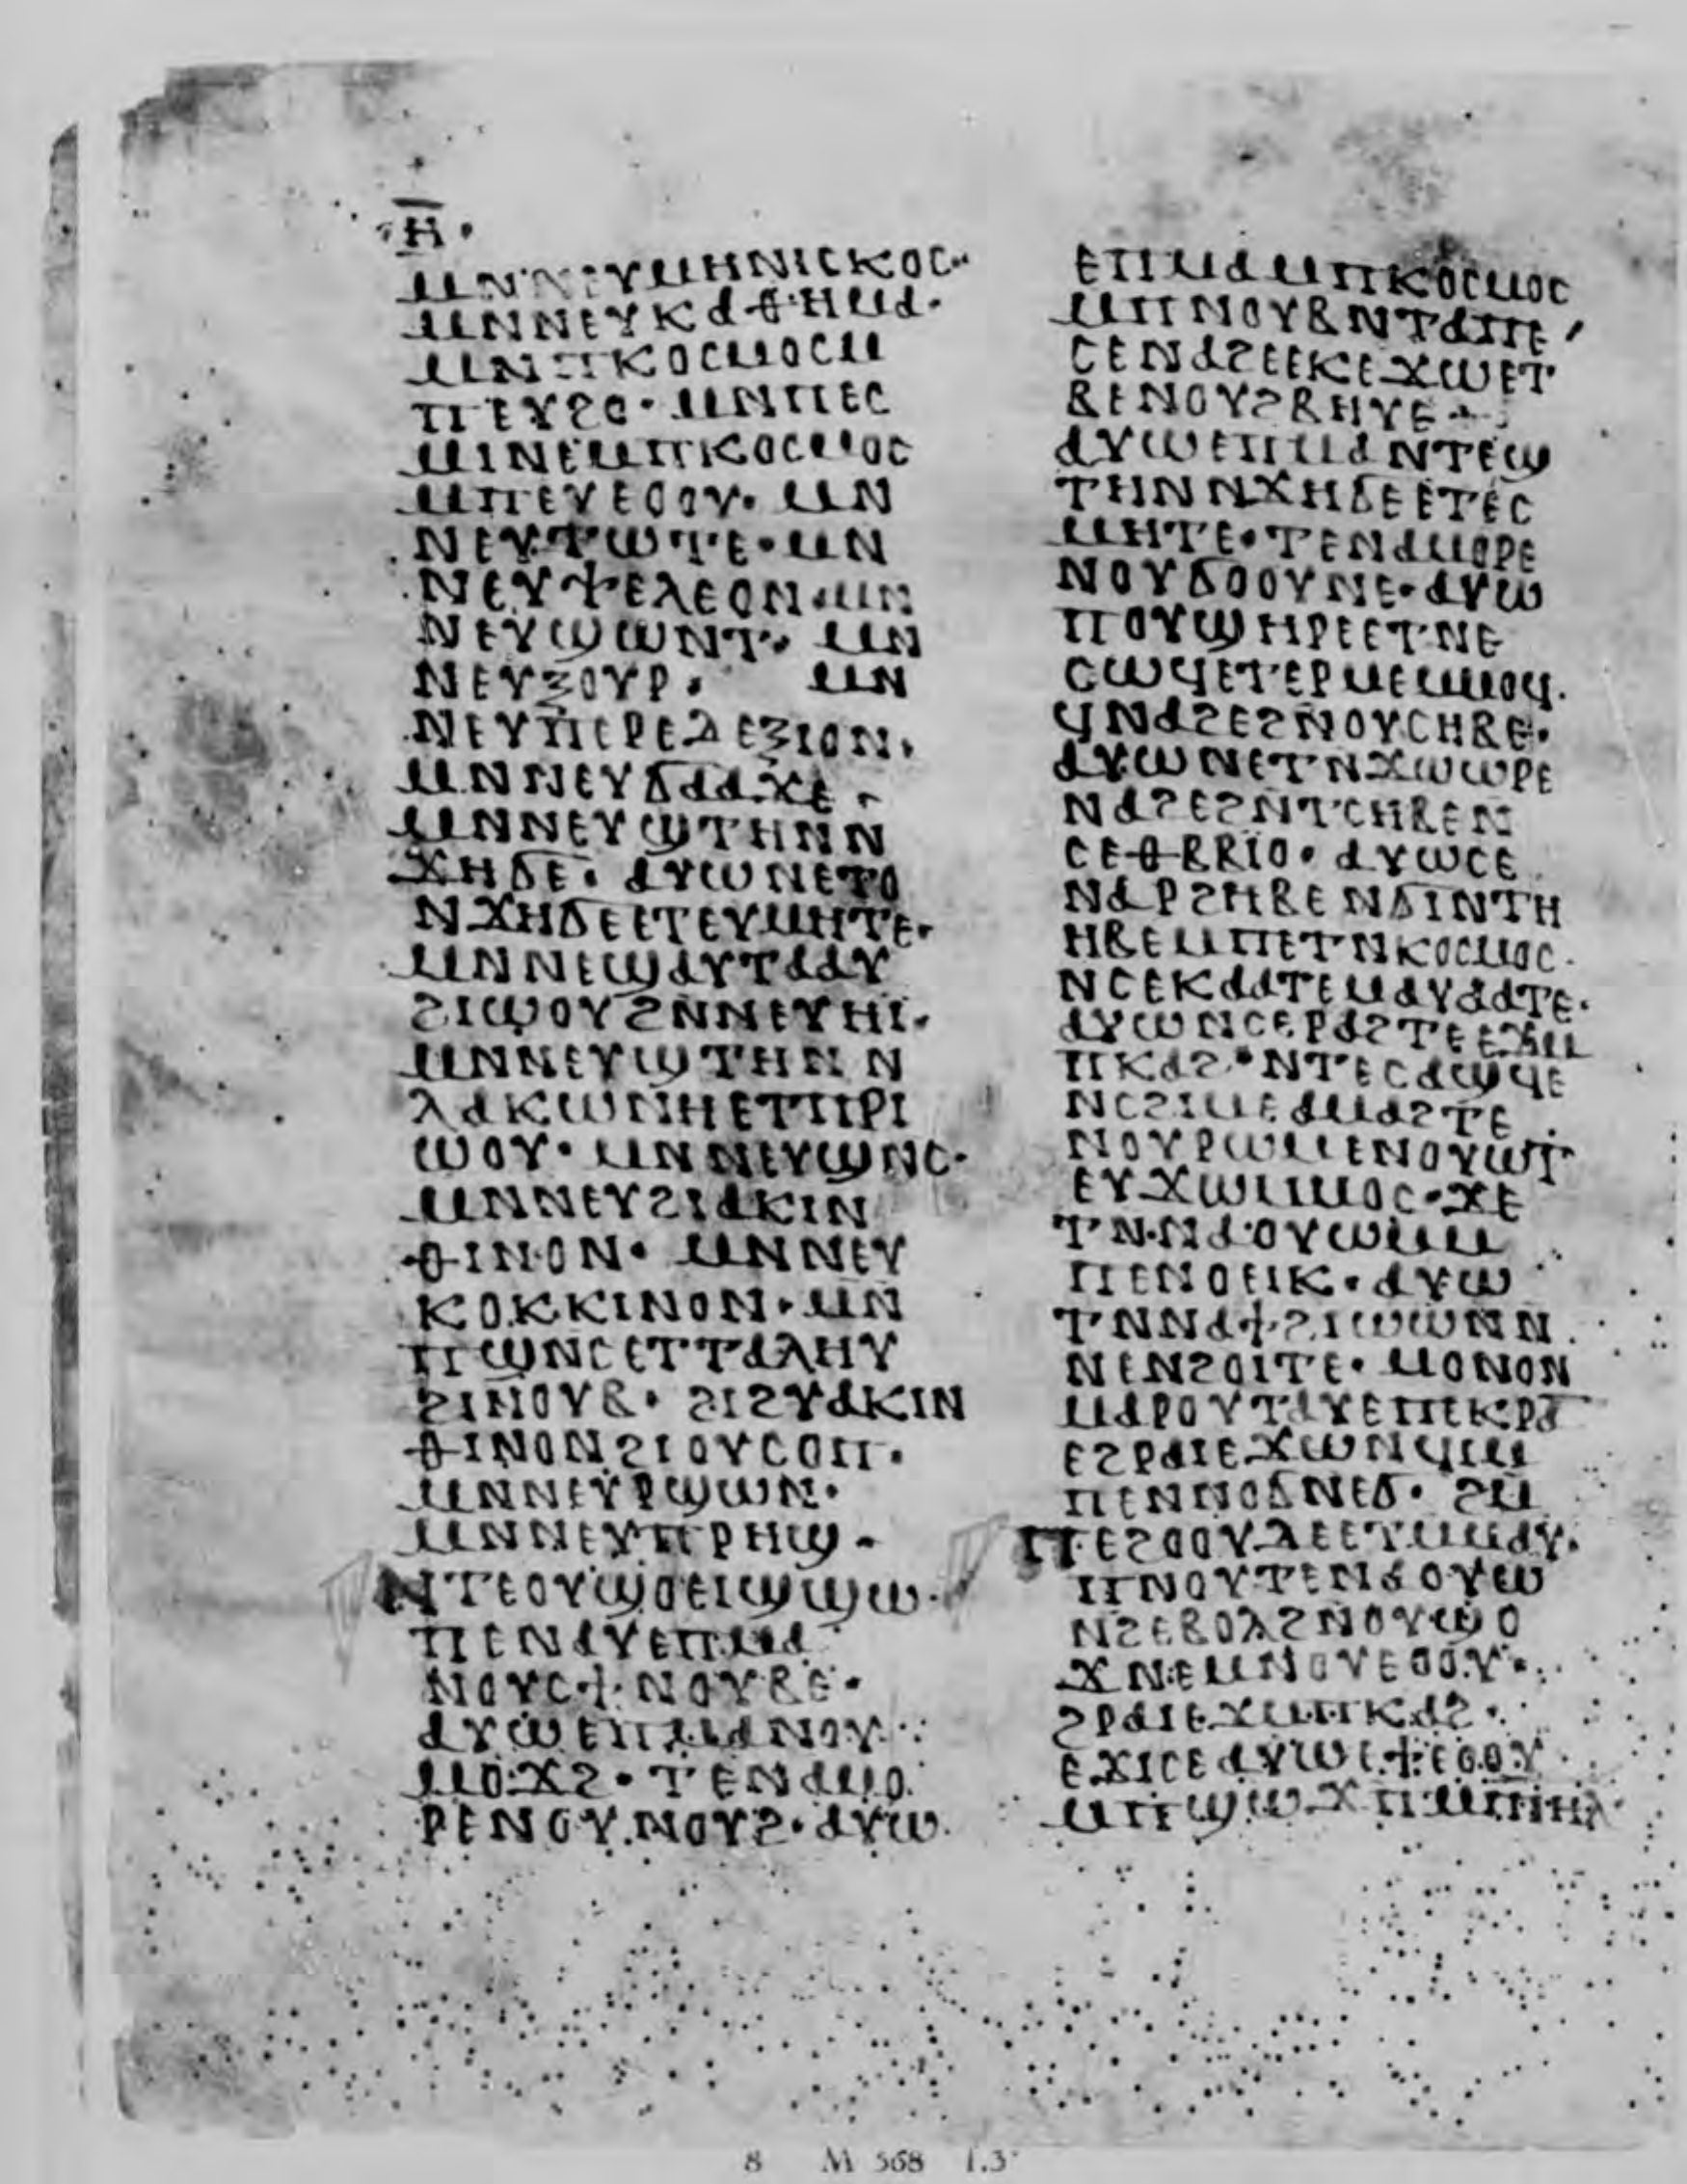 ⲏ
ⲙⲛⲛⲉⲩⲙⲏⲛⲓⲥⲕⲟⲥ·
ⲙⲛⲛⲉⲩⲕⲁⲑⲏⲙⲁ·
ⲙⲛⲡⲕⲟⲥⲙⲟⲥⲙ
ⲡⲉⲩϩⲟ· ⲙⲛⲡⲉⲥ
ⲙⲓⲛⲉⲙⲡⲕⲟⲥⲙⲟⲥ
ⲙⲡⲉⲩⲉⲟⲟⲩ· ⲙⲛ
ⲛⲉⲩⲧⲱⲧⲉ· ⲙⲛ
ⲛⲉⲩϯⲉⲗⲉⲟⲛ· ⲙⲛ
ⲛⲉⲩϣⲱⲛⲧ· ⲙⲛ
ⲛⲉⲩⲝⲟⲩⲣ· ⲙⲛ
ⲛⲉⲩⲡⲉⲣⲉⲗⲉⲝⲓⲟⲛ·
ⲙⲛⲛⲉⲩϭⲁⲁϫⲉ·
ⲙⲛⲛⲉⲩϣⲧⲏⲛⲛ
ϫⲏϭⲉ· ⲁⲩⲱⲛⲉⲧⲟ
ⲛϫⲏϭⲉⲉⲧⲉⲩⲙⲏⲧⲉ·
ⲙⲛⲛⲉϣⲁⲩⲧⲁⲁⲩ
ϩⲓⲱⲟⲩϩⲛⲛⲉⲩⲏⲓ·
ⲙⲛⲛⲉⲩϣⲧⲏⲛⲛ
ⲗⲁⲕⲱⲛⲏⲉⲧⲡⲣⲓ
ⲱⲟⲩ· ⲙⲛⲛⲉⲩϣⲛⲥ·
ⲙⲛⲛⲉⲩϩⲓⲁⲕⲓⲛ
ⲑⲓⲛⲟⲛ· ⲙⲛⲛⲉⲩ
ⲕⲟⲕⲕⲓⲛⲟⲛ· ⲙⲛ
ⲡϣⲛⲥⲉⲧⲧⲁⲗⲏⲩ
ϩⲓⲛⲟⲩⲃ· ϩⲓϩⲩⲁⲕⲓⲛ
ⲑⲓⲛⲟⲛϩⲓⲟⲩⲥⲟⲡ·
ⲙⲛⲛⲉⲩⲣϣⲱⲛ·
ⲙⲛⲛⲉⲩⲡⲣⲏϣ·
ⲛⲧⲉⲟⲩϣⲟⲉⲓϣϣⲱ
ⲡⲉⲛⲁⲩⲉⲡⲙⲁ
ⲛⲟⲩⲥϯⲛⲟⲩⲃⲉ·
ⲁⲩⲱⲉⲡⲙⲁⲛⲟⲩ
ⲙⲟϫϩ· ⲧⲉⲛⲁⲙⲟ
ⲣⲉⲛⲟⲩⲛⲟⲩϩ· ⲁⲩⲱ
ⲉⲡⲙⲁⲙⲡⲕⲟⲥⲙⲟⲥ
ⲙⲡⲛⲟⲩⲃⲛⲧⲁⲡⲉ
ⲥⲉⲛⲁϩⲉⲉⲕⲉϫⲱⲉⲧ
ⲃⲉⲛⲟⲩϩⲃⲏⲩⲉ
ⲁⲩⲱⲉⲡⲙⲁⲛⲧⲉϣ
ⲧⲏⲛⲛⲛϫⲏϭⲉⲉⲧⲉⲥ
ⲙⲏⲧⲉ· ⲧⲉⲛⲁⲙⲟⲣⲉ
ⲛⲟⲩϭⲟⲟⲩⲛⲉ· ⲁⲩⲱ
ⲡⲟⲩϣⲏⲣⲉⲉⲧⲛⲉ
ⲥⲱϥⲉⲧⲉⲣⲙⲉⲙⲙⲟϥ·
ϥⲛⲁϩⲉϩⲛⲟⲩⲥⲏⲃⲉ·
ⲁⲩⲱⲛⲉⲧⲛϫⲱⲱⲣⲉ
ⲛⲁϩⲉϩⲛⲧⲥⲏⲃⲉⲛ
ⲥⲉⲑⲃⲃⲓⲟ· ⲁⲩⲱⲥⲉ
ⲛⲁⲣϩⲏⲃⲉⲛϭⲓⲛⲧⲏ
ⲏⲃⲉⲙⲡⲉⲧⲛⲕⲟⲥⲙⲟⲥ·
ⲛⲥⲉⲕⲁⲁⲧⲉⲙⲁⲩⲁⲁⲧⲉ·
ⲁⲩⲱⲛⲥⲉⲣⲁϩⲧⲉⲉϫⲙ
ⲡⲕⲁϩ· ⲛⲧⲉⲥⲁϣϥⲉ
ⲛⲥϩⲓⲙⲉⲁⲙⲁϩⲧⲉ
ⲛⲟⲩⲣⲱⲙⲉⲛⲟⲩⲱⲧ
ⲉⲩϫⲱⲙⲙⲟⲥ· ϫⲉ
ⲧⲛⲛⲁⲟⲩⲱⲙ
ⲡⲉⲛⲟⲉⲓⲕ· ⲁⲩⲱ
ⲧⲛⲛⲁϯϩⲓⲱⲱⲛⲛ
ⲛⲉⲛϩⲟⲓⲧⲉ· ⲙⲟⲛⲟⲛ
ⲙⲁⲣⲟⲩⲧⲁⲩⲉⲡⲉⲕⲣⲁ
ⲉϩⲣⲁⲓⲉϫⲱⲛϥⲓⲙ
ⲡⲉⲛⲛⲟϭⲛⲉϭ· ϩⲙ
ⲡⲉϩⲟⲟⲩⲇⲉⲉⲧⲙⲙⲁⲩ·
ⲡⲛⲟⲩⲧⲉⲛⲁⲟⲩⲱ
ⲛϩⲉⲃⲟⲗϩⲛⲟⲩϣⲟ
ϫⲛⲉⲙⲛⲟⲩⲉⲟⲟⲩ·
ϩⲣⲁⲓⲉϫⲙⲡⲕⲁϩ·
ⲉϫⲓⲥⲉⲁⲩⲱⲉϯⲉⲟⲟⲩ
ⲙⲡϣⲱϫⲡⲙⲡⲓⲏⲗ
8 M 568 f.3